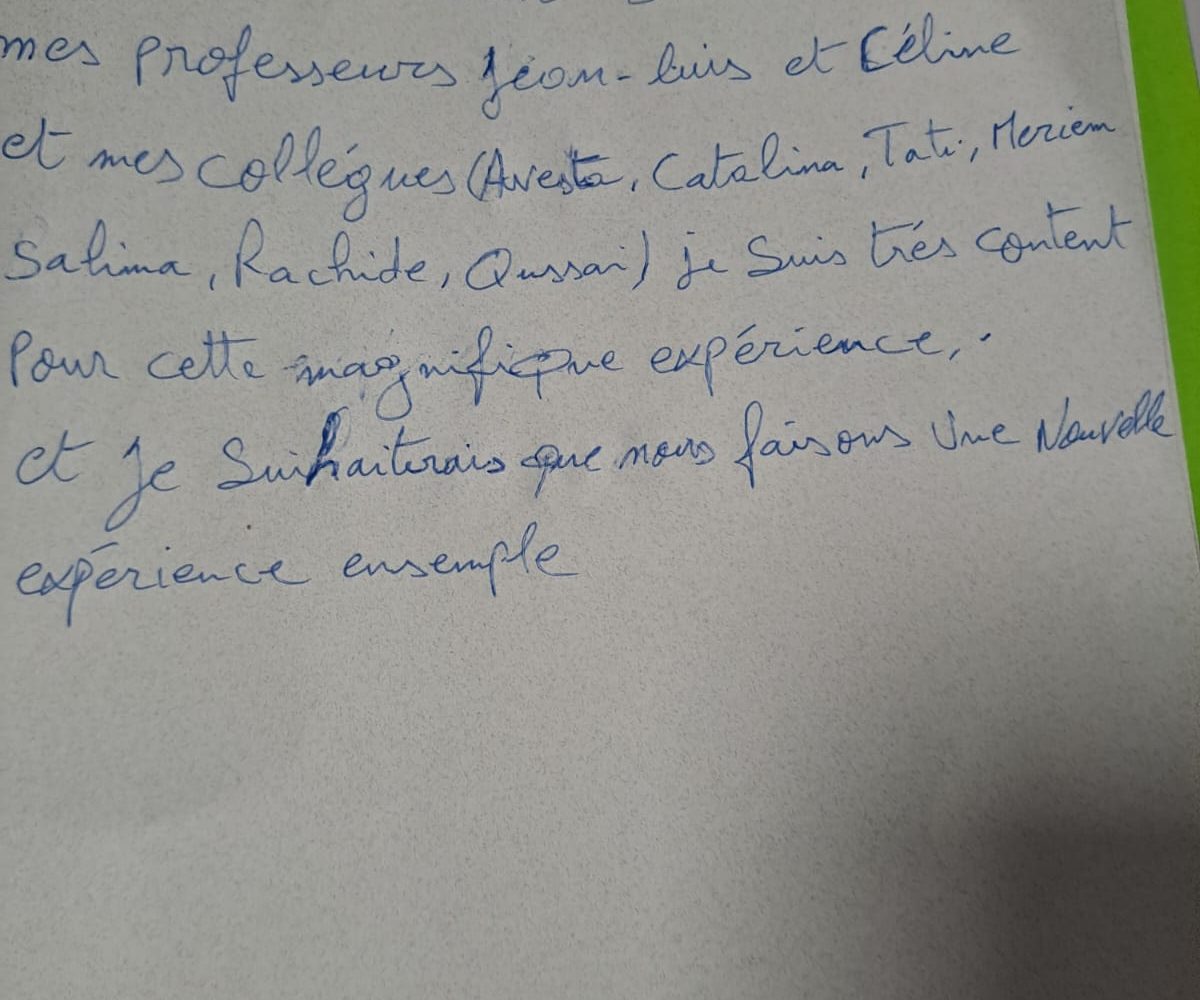 mes professeurs Jéon-luis et Céline
et mes collégues (Avesta, Catalina, Tati, Meriem
Salima, Rachide, Qussai) je suis trés content
Pour cette magnifique expérience,.
et je Suihaiterais que nous faisons Une Nouvelle
expérience ensemple